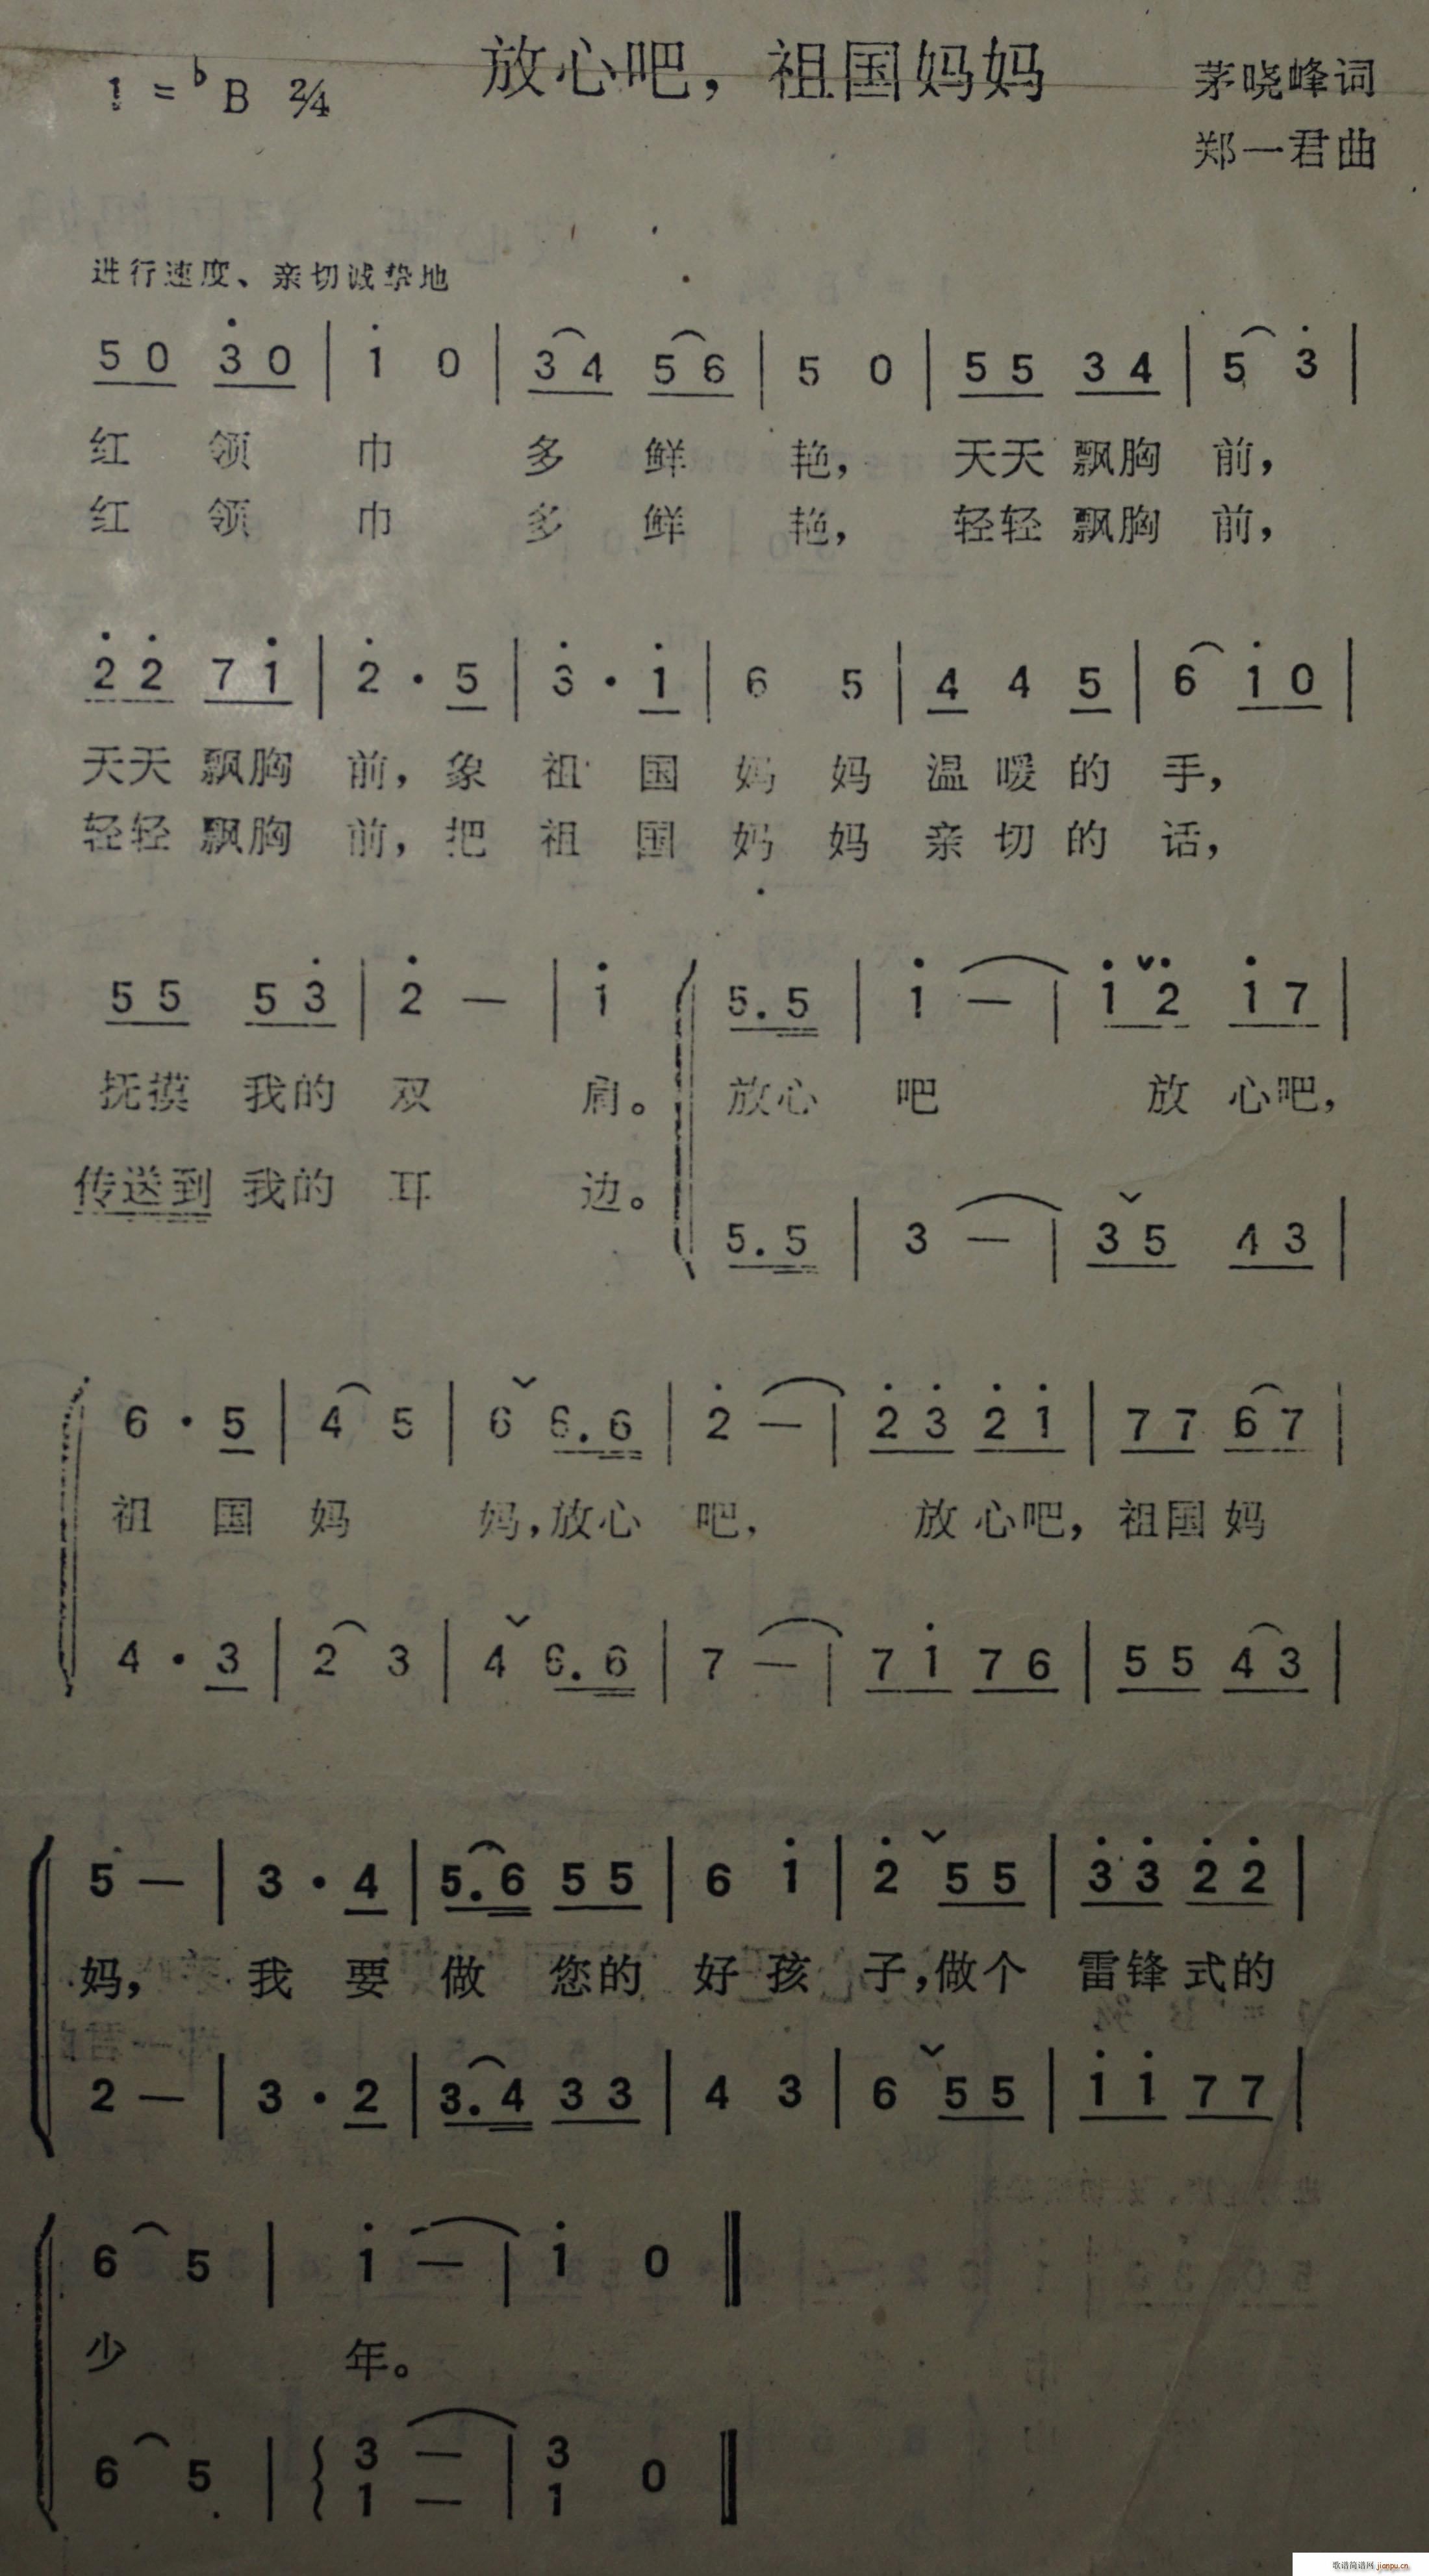 放心吧，祖国妈妈
1 = ♭B 2/4
茅晓峰词
郑一君曲
进行速度、亲切诚挚地
5 0 3̇ 0 | 1̇ 0 | 3 4 5 6 | 5 0 | 5 5 3 4 | 5 3̇ |
红 领 巾 多 鲜 艳， 天天 飘胸 前，
红 领 巾 多 鲜 艳， 轻轻 飘胸 前，
2̇ 2̇ 7 1̇ | 2̇ · 5 | 3̇ · 1̇ | 6 5 | 4 4 5 | 6 1̇ 0 |
天天 飘胸 前，象 祖 国 妈 妈 温 暖 的 手，
轻轻 飘胸 前，把 祖 国 妈 妈 亲 切 的 话，
5 5 5 3̇ | 2̇ — | 1̇ 5. 5 | 1̇ — | 1̇ 2̇ 1̇ 7 |
抚摸 我的 双 肩。 放心 吧 放 心吧，
传送到 我的 耳 边。
5. 5 | 3 — | 3 5 4 3 |
6 · 5 | 4 5 | 6 6. 6 | 2̇ — | 2̇ 3̇ 2̇ 1̇ | 7 7 6 7 |
祖 国 妈 妈，放心 吧， 放 心吧， 祖国 妈
4 · 3 | 2 3 | 4 6. 6 | 7 — | 7 1̇ 7 6 | 5 5 4 3 |
5 — | 3 · 4 | 5. 6 5 5 | 6 1̇ | 2̇ 5 5 | 3̇ 3̇ 2̇ 2̇ |
妈， 我 要 做 您的 好 孩 子，做个 雷锋 式的
2 — | 3 · 2 | 3. 4 3 3 | 4 3 | 6 5 5 | 1̇ 1̇ 7 7 |
6 5 | 1̇ — | 1̇ 0 ‖
少 年。
6 5 | 3 — | 3 0 ‖
1 — 1
歌谱简谱网 jianpu.cn